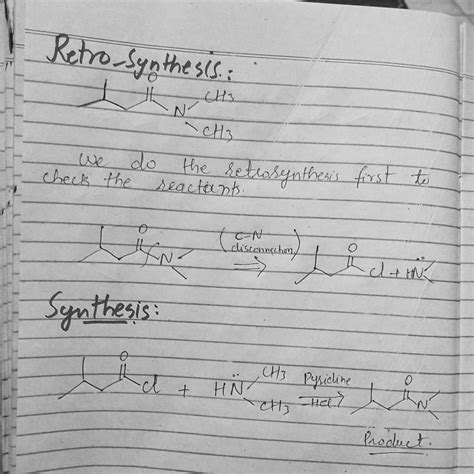 Retro-Synthesis:
O
N
CH3
CH3
we do the retrosynthesis first to
check the reactants.
O
N
(C-N
disconnection)
O
Cl + HN
Synthesis:
O
Cl + HN
CH3
CH3
Pyridine
-HCl
O
N
Product.